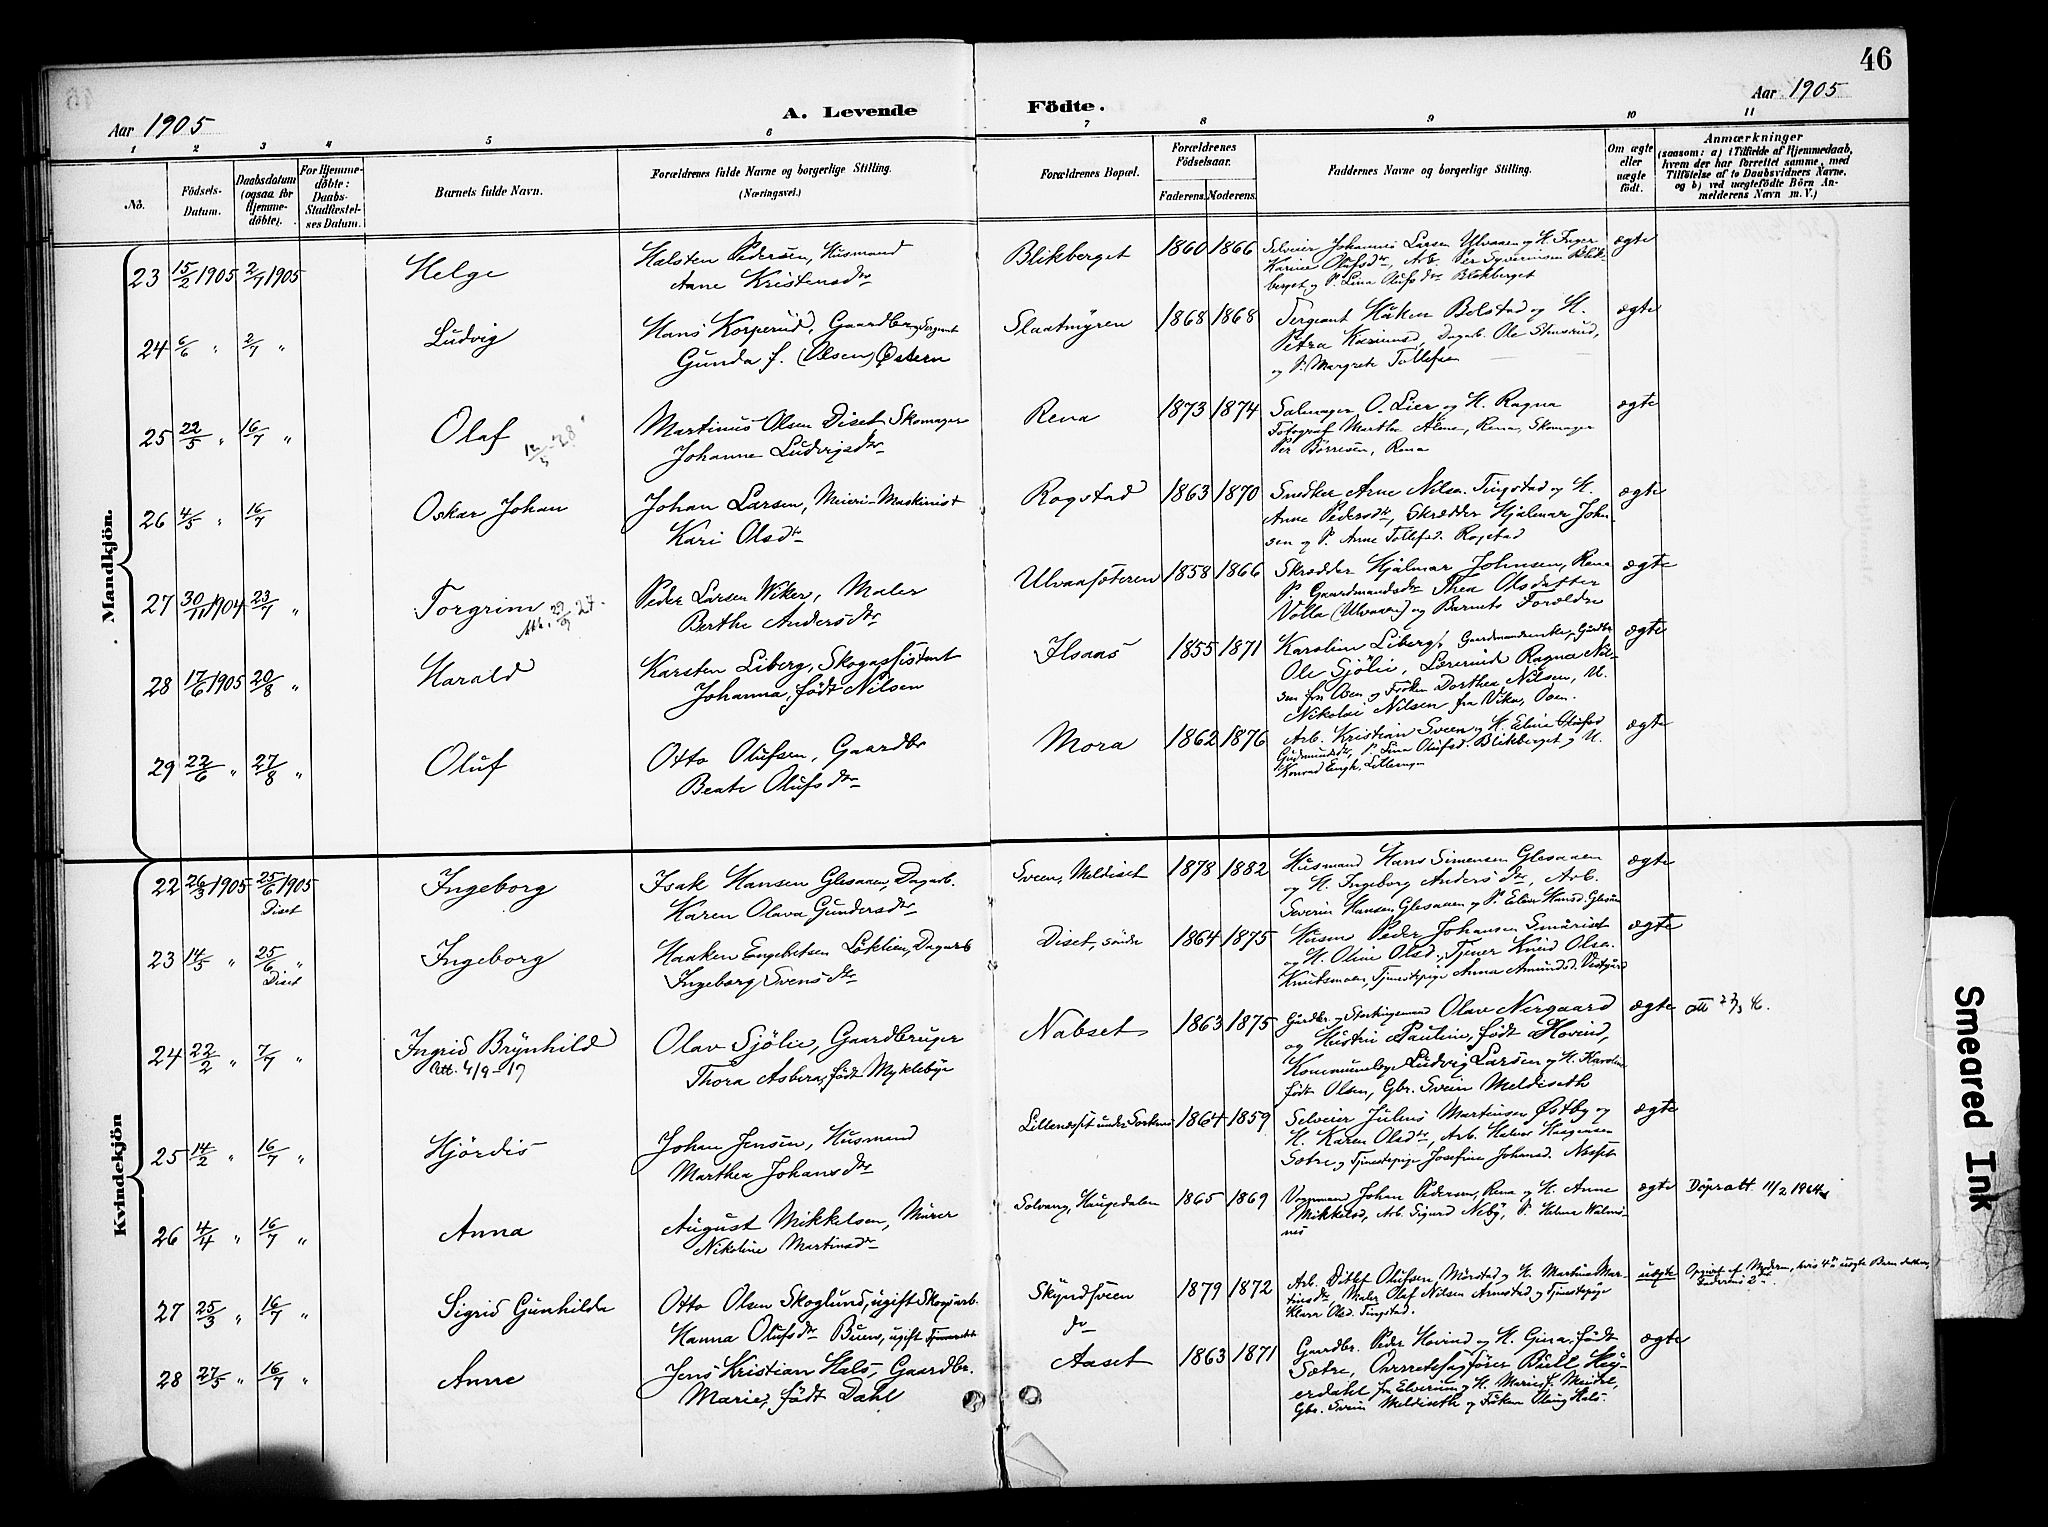 46
Aar 1905
A. Levende Födte.
Aar 1905
1 2 3 4 5 6 7 8 9 10 11
No.
Födsels-Datum.
Daabsdatum (ogsaa for Hjemme-döbte).
For Hjemme-döbte: Daabs-Stadfæstel-ses Datum.
Barnets fulde Navn.
Forældrenes fulde Navne og borgerlige Stilling.
(Næringsvei.)
Forældrenes Bopæl.
Forældrenes Födselsaar.
Faderens. Moderens.
Faddernes Navne og borgerlige Stilling.
Om ægte eller uægte født.
Anmærkninger
(saasom: a) i Tilfælde af Hjemmedaab,
hvem der har forrettet samme, med
Tilföielse af to Daabsvidners Navne,
og b) ved uægtefödte Börn An-
melderens Navn m. V.)
Mandkjön.
23 15/2 1905 2/7 1905 Helge Halsten Pedersen, Husmand Blikberget 1860 1866 Selveier Johannes Larsen Ulvaaen og H. Inger ægte
Anne Kristensdtr Karine Olufsdtr, Arb. Per Syversinsen Blik-
berget og P. Lina Olufsdtr Blikberget
24 6/6 " 2/7 " Ludvig Hans Korperud, Gaardbr og Sergeant Slaatmyren 1868 1868 Sergeant Håken Bolstad og H. ægte
Gunda f. (Olsen) Østern Petra, Dagarb. Ole
og P. Margrete Tollefsen
25 22/5 " 16/7 " Olaf 12/5-28 Martinus Olsen Diset Skomager Rena 1873 1874 Salmager O. Lier og H. Ragna ægte
Johanne Ludvigsdtr Fotograf Marthe Alme, Rena, Skomager
Per Börresen, Rena
26 4/5 " 16/7 Oskar Johan Johan Larsen, Meieri-Maskinist Rogstad 1863 1870 Snedker Arne Nilsen Tingstad og H. ægte
Kari Olsdtr Anne Pedersdtr, Skrædder Hjalmar John-
sen og P. Anne Tollefsd. Rogstad
27 30/11 1904 23/7 " Torgrim Peder Larsen Wiker, Maler Ulvaasæteren 1858 1866 Skrædder Hjalmar Johnsen, Rena ægte
Att. 29/9 27. Berthe Andersdtr P. Gaardmandsdtr Thea Olsdatter
Volla (Ulvaaen) og Barnets Forældre
28 17/6 1905 20/8 " Harald Karsten Liberg, Skogassistent Ilsaas 1855 1871 Karoline Liberg, Gaardmandsenke, Gaardbr. ægte
Johanna, født Nilsen Ole Sjölie, Lærerinde Ragna Nil-
sen fra Osen og Frøken Dorthea Nilsen, U.
Nikolai Nilsen fra Vika, Osen.
29 22/6 " 27/8 " Oluf Otto Olufsen, Gaardbr Mora 1862 1876 Arb. Kristian Sveen og H. Eline Olufsd ægte
Beate Olufsdtr Gudmundsdtr, P. Lina Olufsd. Blikberget og U.
Konrad Engh,
Kvindekjön
22 26/3 1905 25/6 1905 Ingeborg Isak Hansen Glesaaen, Dagarb. Sveen, Meldiset 1878 1882 Husmand Hans Simensen Glesaaen ægte
Diset Karen Olava Gundersdtr og H. Ingeborg Andersdtr, Arb.
Severin Hansen Glesaaen og P. Eline Hansd. Glesaaen
23 14/5 " 25/6 " Ingeborg Haaken Engebretsen Löklien, Dagarb Diset, söndre 1864 1875 Husm Peder Johansen ægte
Diset Ingeborg Svensdtr og H. Oline Olsd., Tjener Knud Olsen
Knutsmoen, Tjenestepige Anna Amundsd. Vestgård
24 22/2 " 7/7 " Ingrid Brynhild Olav Sjölie, Gaardbruger Nabset 1863 1875 Gårdbr. og Storthingsmand Olav Nergaard ægte
Att. 4/9-17 Thora Asbera, født Myklebye og Hustru Pauline, født Hovind,
Ludvig Larsen og H. Karoline
født Olsen, Gbr. Svein Meldiseth
25 14/2 " 16/7 " Hjördis Johan Jensen, Husmand 1864 1859 Selveier Julius Martinsen Østby og ægte
Marthea Johansdtr H. Karen Olsdtr, Arb. Halvor Haagensen
Sætre og Tjenestepige Josefine Johansd. Næsset
26 4/4 " 16/7 " Anna August Mikkelsen, Murer Solvang, Haugedalen 1865 1869 Vognmand Johan Pedersen, Rena og H. Anne ægte Döpsatt. 11/2 1964
Nikoline Martinsdtr Mikkelsd, Arb. Sigurd Neby, P. Helma
27 25/3 " 16/7 " Sigrid Gunhilde Otto Olsen Skoglund, ugift Skogsarb. Skyndsveen 1879 1872 Arb. Ditlef Olufsen, Mörstad og H. Martina Mar- uægte Opgivet af Moderen, hvis 4de uægte Barn dette er,
Hanna Olufsdtr Buene, ugift dtr tinsdtr, Maler Olaf Nilsen Arnestad og Tjenestepige Faderens 2det.
Klara Olsd. Tingstad.
28 27/5 " 16/7 " Anne Jens Kristian Hals, Gaardbr. Aaset 1863 1871 Gaardbr. Peder Hovind og H. Gina, født ægte
Marie, født Dahl Sætre, Overretssagfører Bull, Hey-
erdahl fra Elverum og H. Marie f.
Gbr. Svein Meldiseth og Frøken Olaug Hals.
Smeared Ink